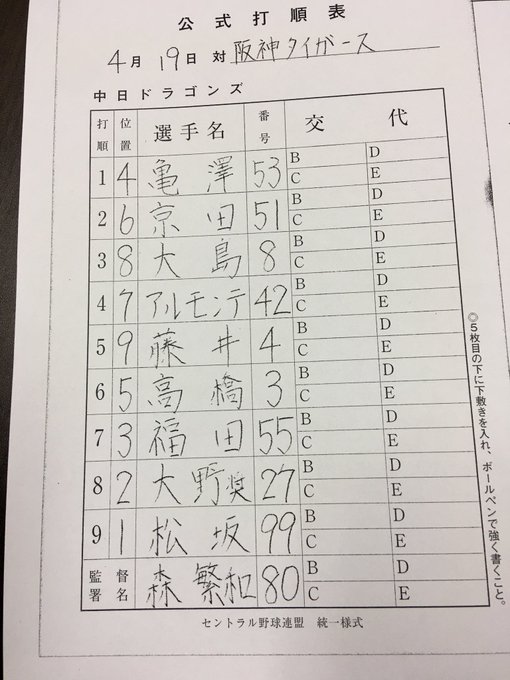 公式打順表
4月19日 対 阪神タイガース
中日ドラゴンズ
打順 位置 選手名 番号 交代
1 4 亀澤 53 B D C E
2 6 京田 51 B D C E
3 8 大島 8 B D C E
4 7 アルモンテ 42 B D C E
5 9 藤井 4 B D C E
6 5 高橋 3 B D C E
7 3 福田 55 B D C E
8 2 大野奨 27 B D C E
9 1 松坂 99 B D C E
監督署名 森繁和 80 B D C E
セントラル野球連盟 統一様式
◎5枚目の下に下敷きを入れ、ボールペンで強く書くこと。